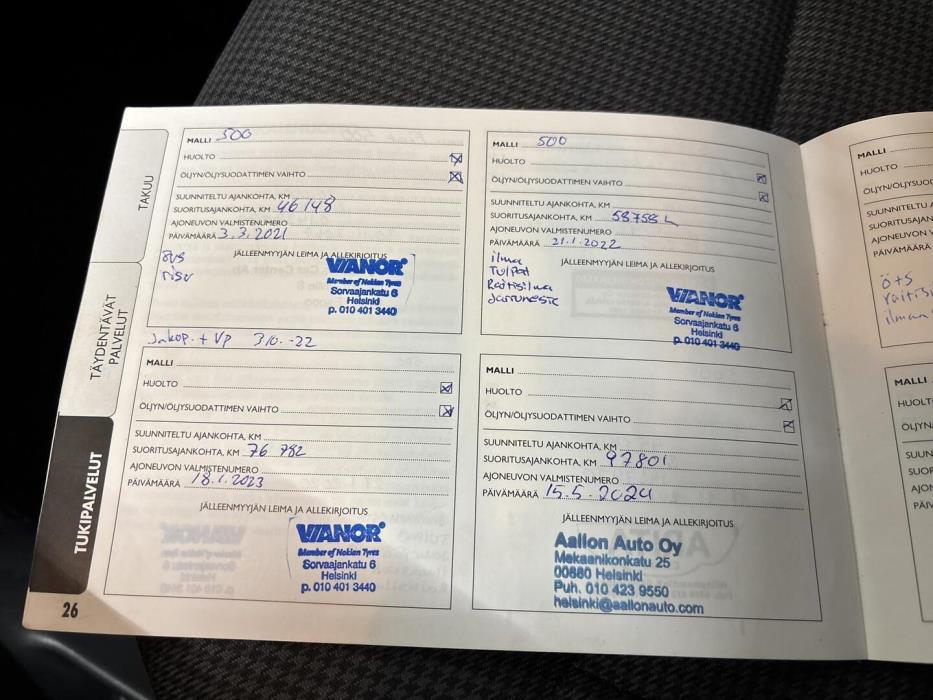 TAKUU
TÄYDENTÄVÄT
PALVELUT
TUKIPALVELUT
26
MALLI 500
HUOLTO
ÖLJYN/ÖLJYSUODATTIMEN VAIHTO
SUUNNITELTU AJANKOHTA, KM
SUORITUSAJANKOHTA, KM 46148
AJONEUVON VALMISTENUMERO
PÄIVÄMÄÄRÄ 3.3.2021
JÄLLEENMYYJÄN LEIMA JA ALLEKIRJOITUS
VIANOR
Member of Nokian Tyres
Sorvaajankatu 6
Helsinki
p. 010 401 3440
MALLI 500
HUOLTO
ÖLJYN/ÖLJYSUODATTIMEN VAIHTO
SUUNNITELTU AJANKOHTA, KM
SUORITUSAJANKOHTA, KM 58758
AJONEUVON VALMISTENUMERO
PÄIVÄMÄÄRÄ 21.1.2022
JÄLLEENMYYJÄN LEIMA JA ALLEKIRJOITUS
ilma
Tulpat
Raitisilma
Jarruneste
VIANOR
Member of Nokian Tyres
Sorvaajankatu 6
Helsinki
p. 010 401 3440
Jakop. + VP 3.10.-22
MALLI
HUOLTO
ÖLJYN/ÖLJYSUODATTIMEN VAIHTO
SUUNNITELTU AJANKOHTA, KM
SUORITUSAJANKOHTA, KM 76 782
AJONEUVON VALMISTENUMERO
PÄIVÄMÄÄRÄ 18.1.2023
JÄLLEENMYYJÄN LEIMA JA ALLEKIRJOITUS
VIANOR
Member of Nokian Tyres
Sorvaajankatu 6
Helsinki
p. 010 401 3440
MALLI
HUOLTO
ÖLJYN/ÖLJYSUODATTIMEN VAIHTO
SUUNNITELTU AJANKOHTA, KM
SUORITUSAJANKOHTA, KM 97801
AJONEUVON VALMISTENUMERO
PÄIVÄMÄÄRÄ 15.5.2024
JÄLLEENMYYJÄN LEIMA JA ALLEKIRJOITUS
Aallon Auto Oy
Mekaanikonkatu 25
00880 Helsinki
Puh. 010 423 9550
helsinki@aallonauto.com
MALLI
HUOLTO
SUUNNITELTU
AJONEUVON V
PÄIVÄMÄÄRÄ
ö+s
MALLI